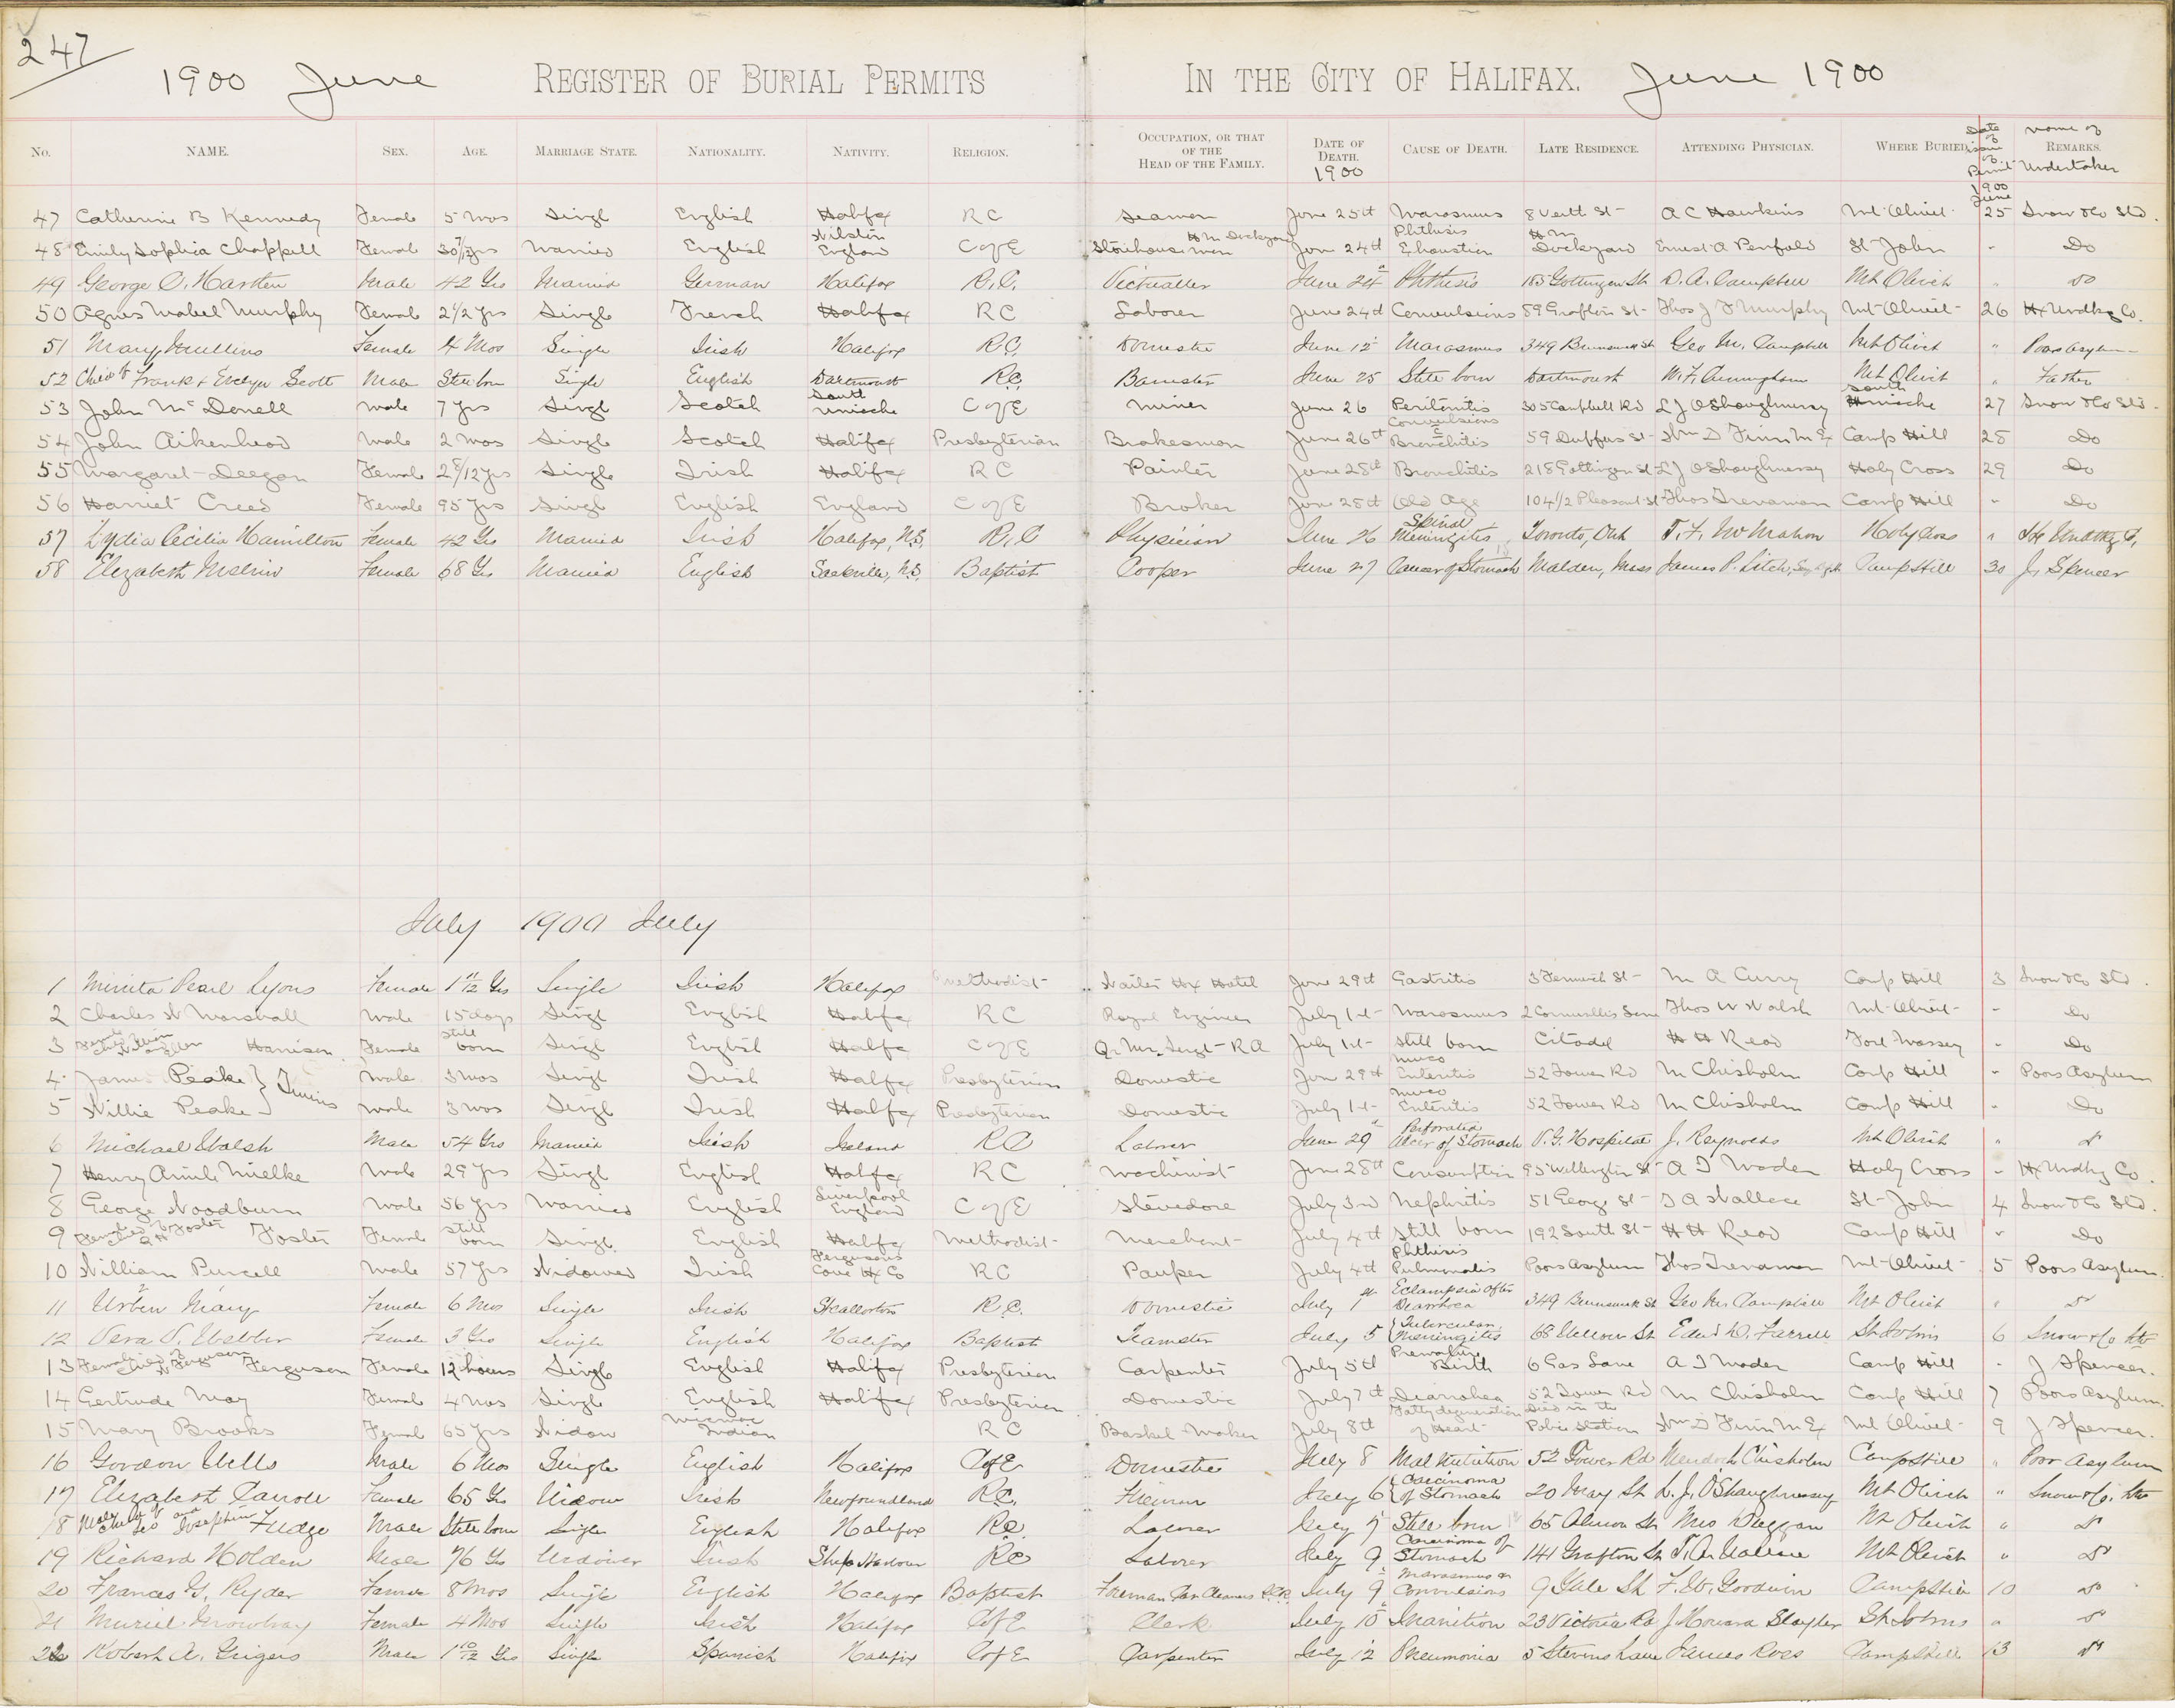 247
1900 June REGISTER OF BURIAL PERMITS IN THE CITY OF HALIFAX. June 1900
No. NAME. SEX. AGE. MARRIAGE STATE. NATIONALITY. NATIVITY. RELIGION. OCCUPATION, OR THAT OF THE HEAD OF THE FAMILY. DATE OF DEATH. 1900 CAUSE OF DEATH. LATE RESIDENCE. ATTENDING PHYSICIAN. WHERE BURIED. Date of issue of Permit 1900 June Name of REMARKS. Undertaker
47 Catherine B Kennedy Female 5 mos Single English Halifax R C Seaman June 25th Marasmus 8 Veith St A C Hawkins Mt Olivet 25 Snow & Co Ltd.
48 Emily Sophia Chappell Female 30 7/12 yrs Married English England C of E Storehouseman H M Dockyard June 24th Phthisis Exhaustion H M Dockyard Ernest A Penfold St John " Do
49 George Married 42 Yrs Male German Halifax R.C. Victualler June 24th Phthisis 185 Gottingen St. D. A. Campbell Mt Olivet " Do
50 Agnes Mabel Murphy Female 2 1/2 yrs Single French Halifax R C Laborer June 24th Convulsions 89 Grafton St Thos J F Murphy Mt Olivet 26 Hx Undtkg Co.
51 Mary Mullins Female 4 Mos Single Irish Halifax R.C. Domestic June 12 Marasmus 349 Brunswick St Geo M. Campbell Mt Olivet " Poors Asylum
52 Child of Frank & Evelyn Scott Male Still born Single English Dartmouth R.C. Barrister June 25 Still born Dartmouth W. F. Cunningham Mt Olivet " Father
53 John McDonell Male 7 yrs Single Scotch South Uniacke C of E Miner June 26 Peritonitis 305 Campbell Rd L J O'Shaughnessy South Uniacke 27 Snow & Co Ltd
54 John Aikenhead Male 2 mos Single Scotch Halifax Presbyterian Brakesman June 26th Convulsions & Bronchitis 59 Duffus St Wm D Finn M Ex Camp Hill 28 Do
55 Margaret Deegan Female 2 8/12 yrs Single Irish Halifax R C Painter June 28th Bronchitis 218 Gottingen St L J O'Shaughnessy Holy Cross 29 Do
56 Harriet Creed Female 95 yrs Single English England C of E Broker June 28th Old Age 104 1/2 Pleasant St Thos Trenaman Camp Hill " Do
57 Lydia Cecilia Hamilton Female 42 Yrs Married Irish Halifax, N.S. R.C Physician June 26 Spinal Meningitis Toronto, Ont T. F. McMahon Holy Cross " Hx Undtkg Co.
58 Elizabeth Female 68 Yrs Married English Sackville, N.S. Baptist Cooper June 27 Cancer of Stomach Malden, Mass James P. Camp Hill 30 J. Spencer
July 1900 July
1 Minita Pearl Lyons Female 1 11/12 Yrs Single Irish Halifax Methodist Waiter Hx Hotel June 29th Gastritis 3 Fenwick St M A Curry Camp Hill 3 Snow & Co Ltd.
2 Charles W Marshall Male 15 days Single English Halifax R C Royal Engineer July 1st Marasmus 2 Cornwallis Lane Thos W Walsh Mt Olivet " Do
3 Harrison Female Still born Single English Halifax C of E Qr Mr. Sergt R A July 1st Still born Citadel H H Read Fort Massey " Do
4 James Peake } Twins Male 3 mos Single Irish Halifax Presbyterian Domestic June 29th Muco Enteritis 52 Tower Rd M Chisholm Camp Hill " Poors Asylum
5 Willie Peake } Male 3 mos Single Irish Halifax Presbyterian Domestic July 1st Muco Enteritis 52 Tower Rd M Chisholm Camp Hill " Do
6 Michael Walsh Male 54 Yrs Married Irish Ireland R C Laborer June 29 Perforated Ulcer of Stomach V. G. Hospital J. Reynolds Mt Olivet " Do
7 Henry Mielke Male 29 yrs Single English Halifax R C Machinist June 28th Consumption 95 Wellington St A I Mader Holy Cross " Hx Undtkg Co
8 George Woodburn Male 56 yrs Married English Liverpool England C of E Stevedore July 3rd Nephritis 51 George St T A Wallace St John 4 Snow & Co Ltd.
9 Foster Female Still born Single English Halifax Methodist Merchant July 4th Still born 192 South St H H Read Camp Hill " Do
10 William Purcell Male 57 yrs Widower Irish Fergusons Cove Hx Co R C Pauper July 4th Phthisis Pulmonalis Poors Asylum Thos Trenaman Mt Olivet 5 Poors Asylum.
11 Urben Mary Female 6 Mos Single Irish Stellarton R.C. Domestic July 1st Eclampsia after Diarrhoea 349 Brunswick St Geo M. Campbell Mt Olivet " Do
12 Vera V. Webber Female 3 Yrs Single English Halifax Baptist Teamster July 5 Tubercular Meningitis 68 Willow St Edwd D. Farrell St Johns 6 Snow & Co Ltd
13 Female child of Ferguson Ferguson Female 12 hours Single English Halifax Presbyterian Carpenter July 5th Premature Birth 6 Gas Lane A I Mader Camp Hill " J Spencer.
14 Gertrude May Female 4 mos Single English Halifax Presbyterian Domestic July 7th Diarrohea 52 Tower Rd M Chisholm Camp Hill 7 Poors Asylum.
15 Mary Brooks Female 65 yrs Widow Micmac Indian R C Basket Maker July 8th Fatty degeneration of Heart Died in the Police Station Wm D Finn M Ex Mt Olivet 9 J Spencer.
16 Gordon Wells Male 6 Mos Single English Halifax C of E Domestic July 8 Mal Nutrition 52 Tower Rd Murdoch Chisholm Camp Hill " Poor Asylum
17 Elizabeth Carroll Female 65 Yrs Widow Irish Newfoundland R.C. Fireman July 6 Carcinoma of Stomach 20 May St L. J. O'Shaughnessy Mt Olivet " Snow & Co. Ltd
18 Male child of Geo and Josephine Fudge Male Still born Single English Halifax R.C. Laborer July 7 Still born 65 Almon St Mrs Duggan Mt Olivet " Do
19 Richard Holden Male 76 Yrs Widower Irish Ship Harbour R.C. Laborer July 9 Carcinoma of Stomach 141 Grafton St T. A. Wallace Mt Olivet " Do
20 Frances G. Ryder Female 8 Mos Single English Halifax Baptist Foreman Car Cleaners I.C.R. July 9 Marasmus Convulsions 9 Yale St F. W. Goodwin Camp Hill 10 Do
21 Muriel Mowbray Female 4 Mos Single Irish Halifax C of E Clerk July 10 Inanition 23 Victoria Rd J. Howard Slayter St Johns " Do
22 Robert A. Grigers Male 1 10/12 Yrs Single Spanish Halifax C of E Carpenter July 12 Pneumonia 5 Stevens Lane James Ross Camp Hill 13 Do